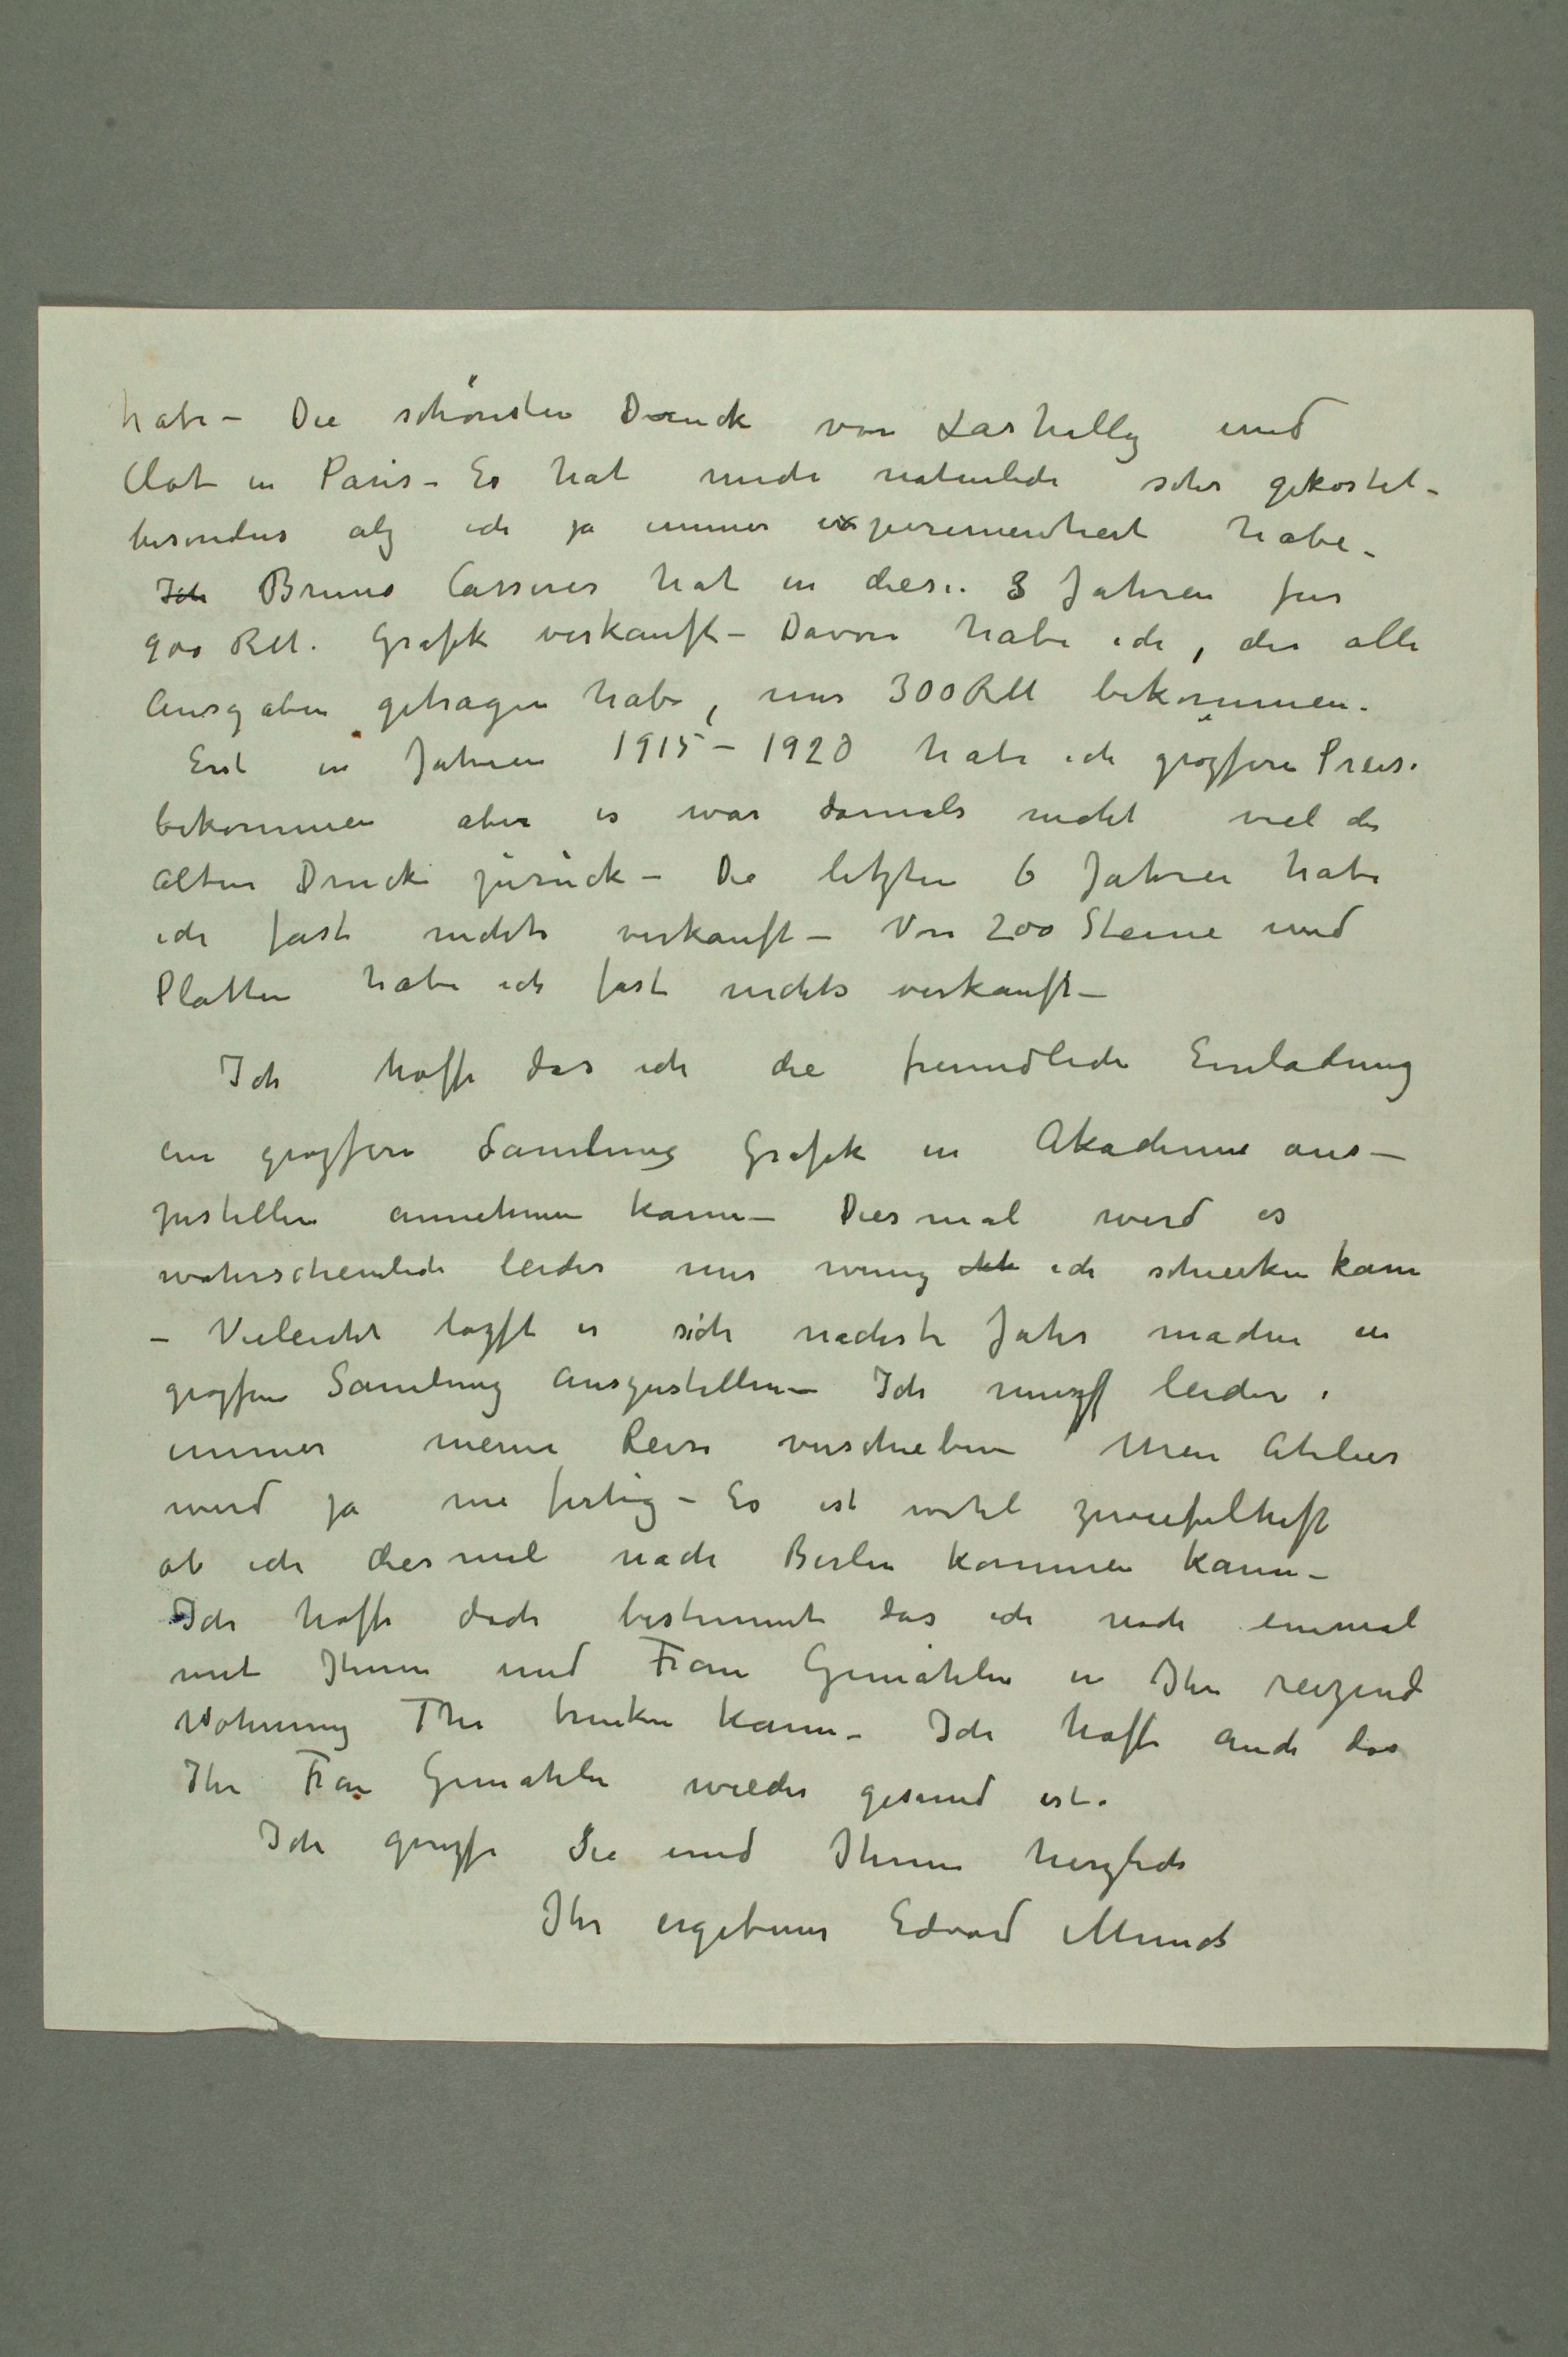 habe – Die schönsten Druck von Lashally und
Clot in Paris – Es hat mich naturlich sehr gekostet –
besonders alz ich ja immer experimentiert habe –
Ich Bruno Cassirer hat in diese 3 Jahren für
900 RM. Grafik verkauft – Davon habe ich, der alle
Ausgaben getragen habe, nur 300 RM bekommen.
Erst in Jahren 1915 – 1920 habe ich grozfere Preise
bekommen aber es war damals nicht viel der
alten Drucke zurück – Die letzten 6 Jahren habe
ich fast nichts verkauft – Von 200 Steine und
Platten habe ich fast nichts verkauft –
Ich hoffe das ich die freundliche Einladung
eine grozfere Samlung Grafik in Akademie aus–
zustellen annehmen kann – Diesmal wird es
wahrscheinlich leider nur wenig ich schicken kann
– Vieleicht lazft es sich nächste Jahr machen ein
grozfere Samlung auszustellen – Ich muzf leider
immer meine Reise verschieben Mein Atelier
wird ja nie fertig – Es ist wohl zweifelhaft
ob ich diesmal nach Berlin kommen kann –
Ich hoffe doch bestimmt das ich noch einmal
mit Ihnen und Frau Gemahlin in Ihre reizend
Wohnung The trinken kann – Ich hoffe auch das
Ihr Frau Gemahlin wieder gesund ist.
Ich gruzfe Sie und Ihnen herzlich
Ihr ergebener Edvard Munch